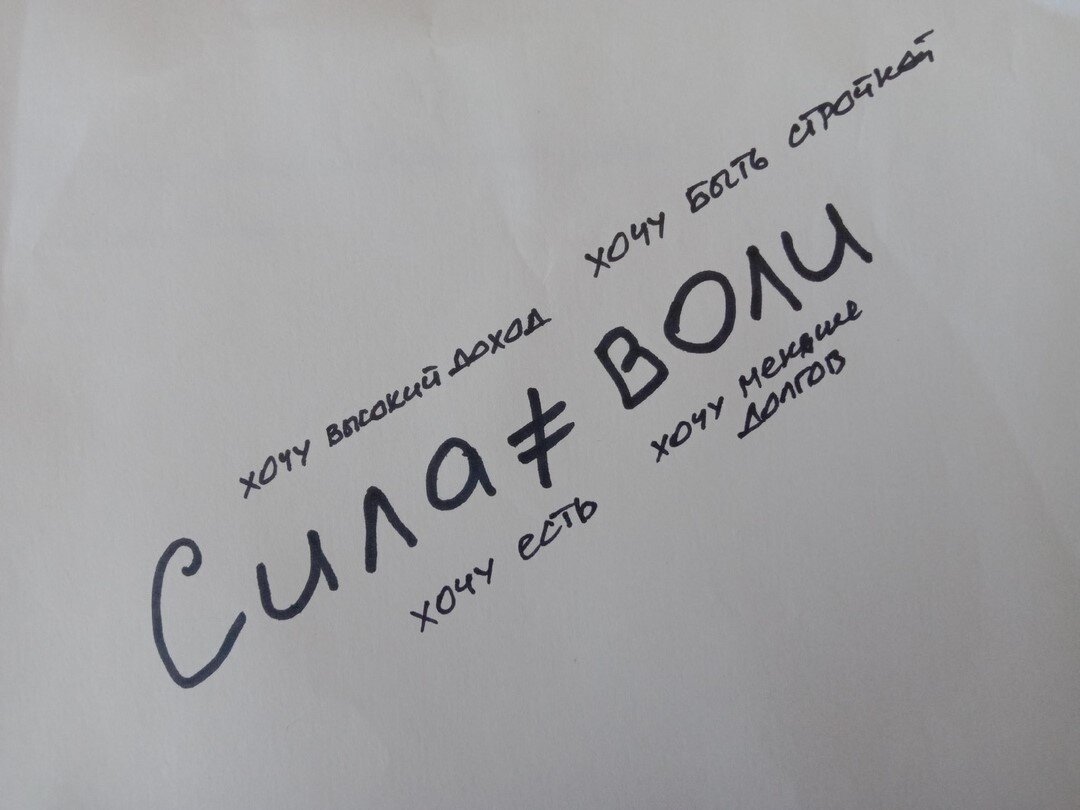 хочу быть стройной
хочу высокий доход
Сила ≠ воли
хочу есть
хочу меньше
долгов